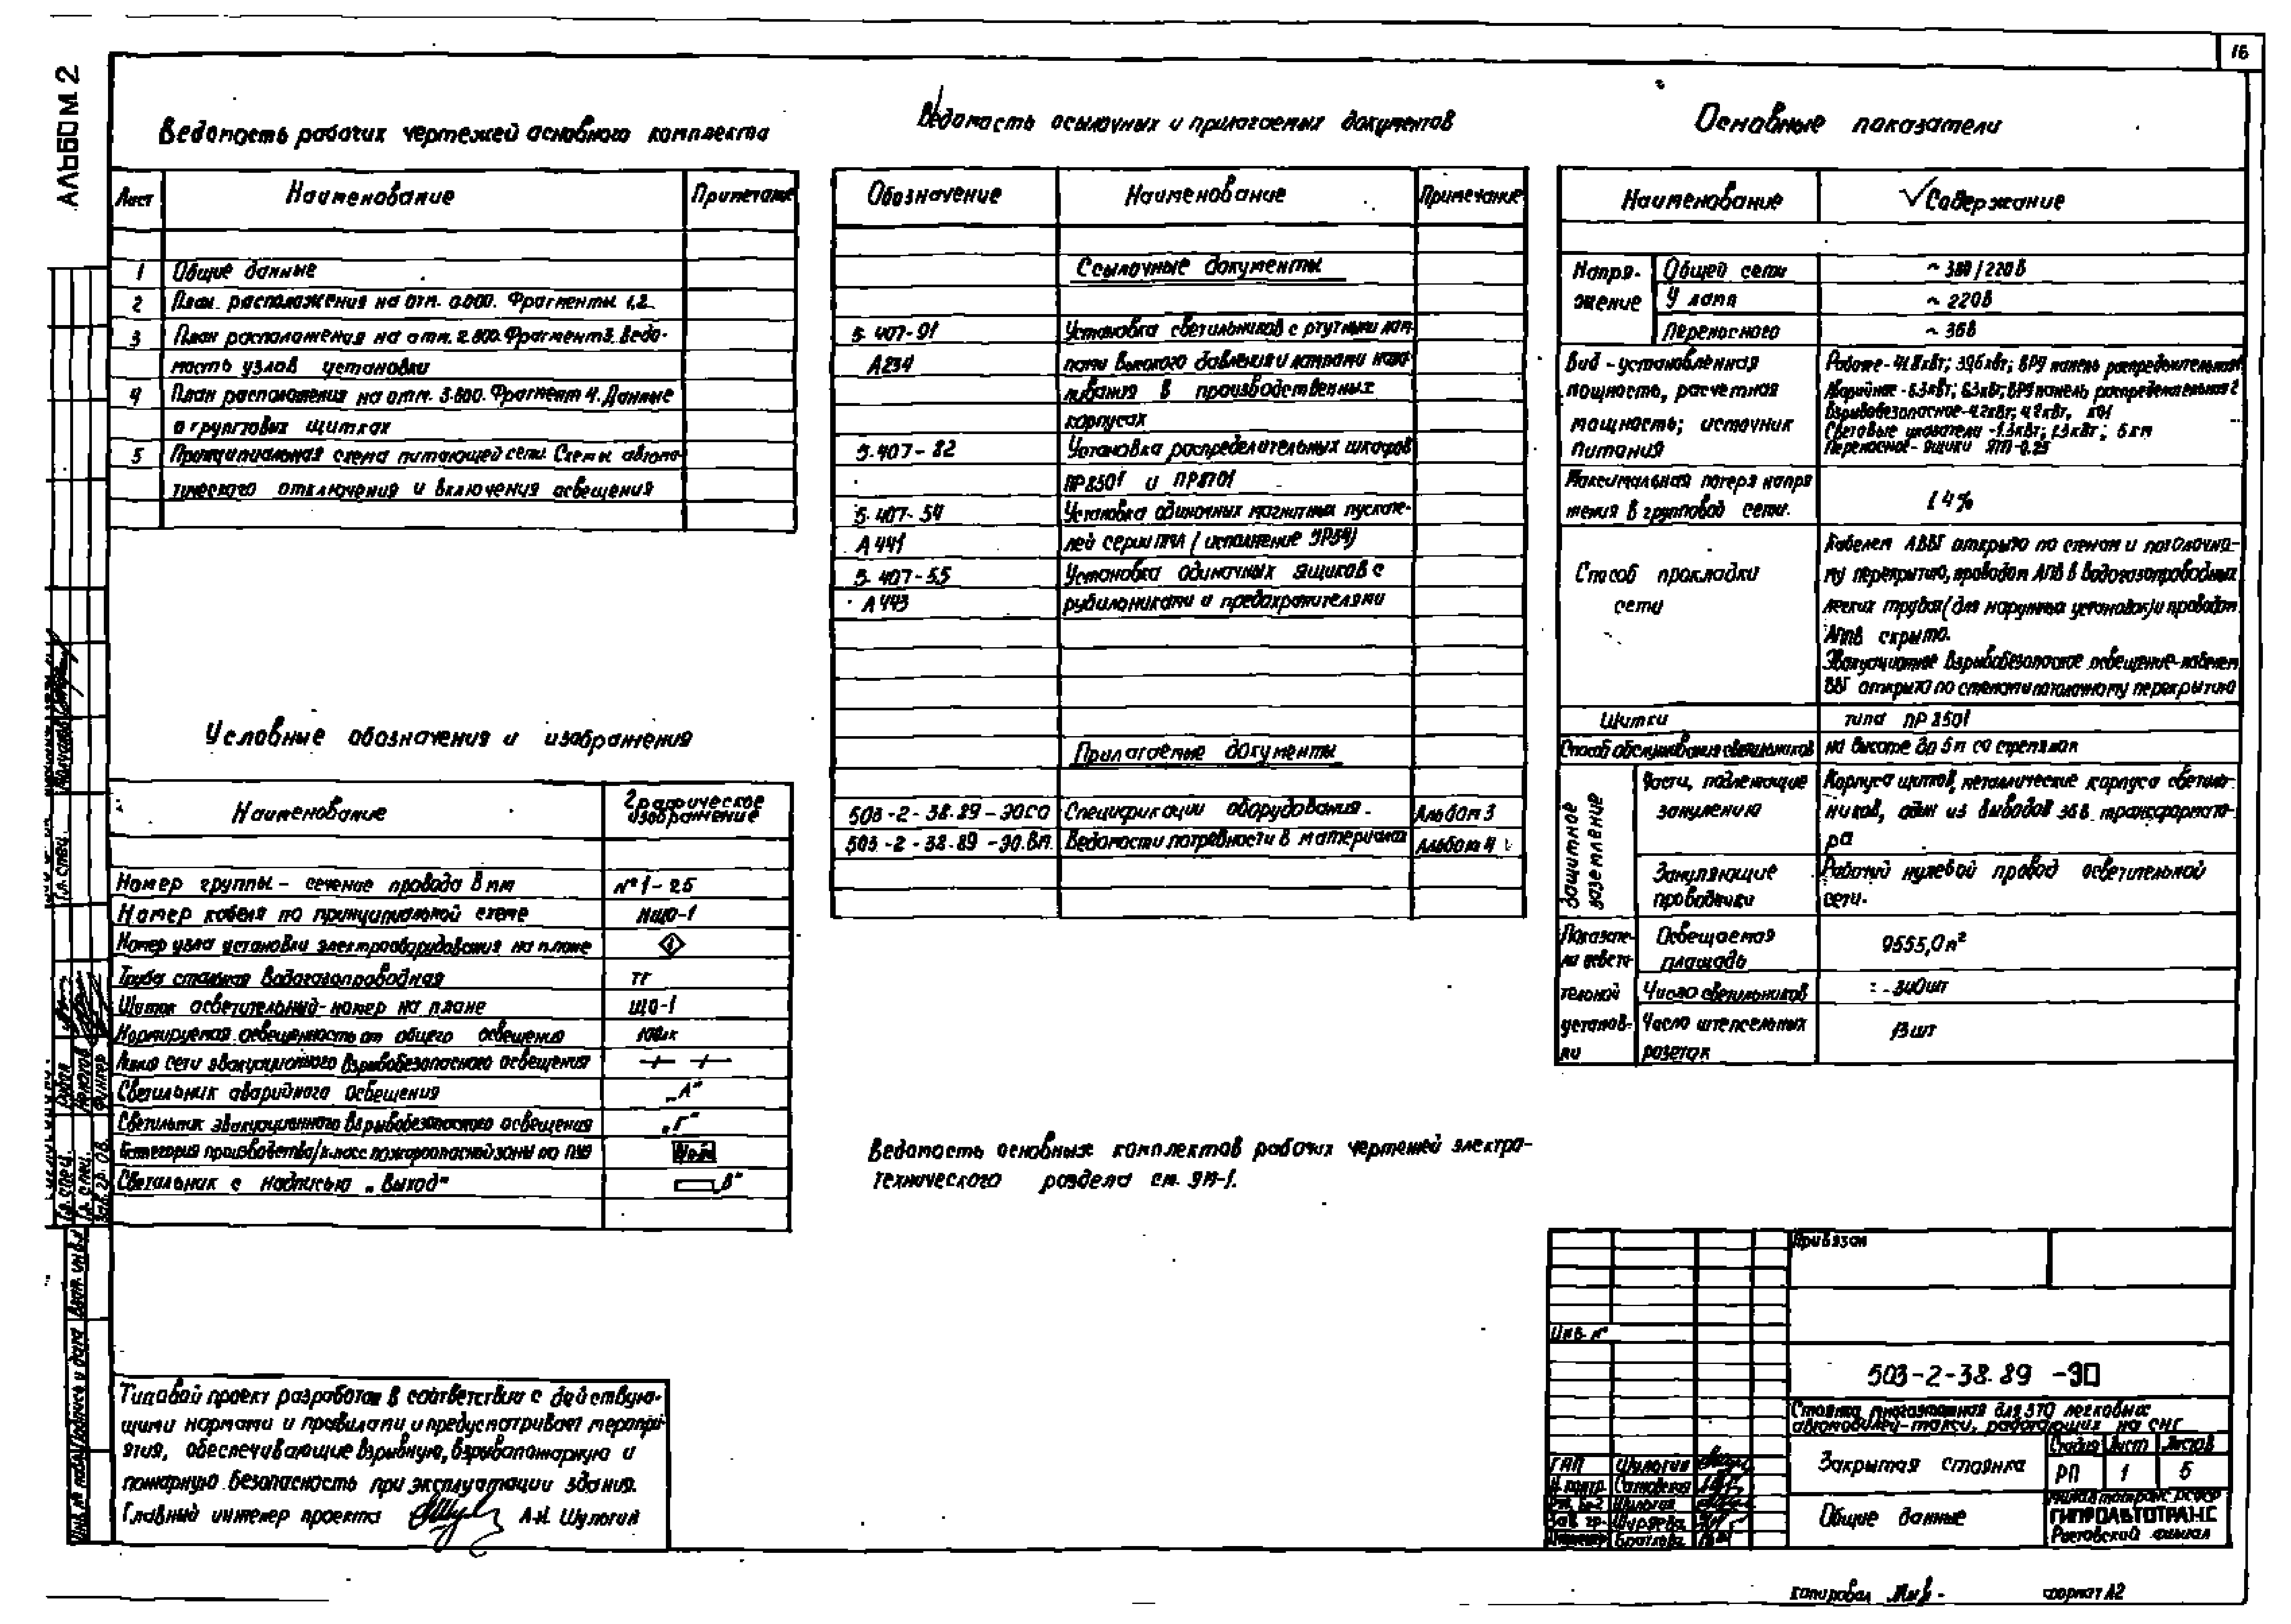 16
АЛЬБОМ 2
Ведомость рабочих чертежей основного комплекта
Лист Наименование Примечание
1 Общие данные
2 План расположения на отм. 0.000. Фрагменты 1,2.
3 План расположения на отм. 2.800. Фрагмент 3. Ведо-
мость узлов установки
4 План расположения на отм. 3.600. Фрагмент 4. Данные
о групповых щитках
5 Принципиальная схема питающей сети Схемы автома-
тического отключения и включения освещения
Условные обозначения и изображения
Наименование Графическое
изображение
Номер группы - сечение провода в мм №1-2,5
Номер кабеля по принципиальной схеме НЩО-1
Номер узла установки электрооборудования на плане
Труба стальная водогазопроводная ТГ
Щиток осветительный-номер на плане ЩО-1
Нормируемая освещенность от общего освещения
Линия сети эвакуационного взрывобезопасного освещения
Светильник аварийного освещения „А"
Светильник эвакуационного взрывобезопасного освещения „Г"
Категория производства/класс пожароопасной зоны по ПУЭ
Светильник с надписью „Выход" „В"
Типовой проект разработан в соответствии с действую-
щими нормами и правилами и предусматривает меропри-
ятия, обеспечивающие взрывную, взрывопожарную и
пожарную безопасность при эксплуатации здания.
Главный инженер проекта А.И. Шулогин
Ведомость ссылочных и прилагаемых документов
Обозначение Наименование Примечание
Ссылочные документы
5.407-91 Установка светильников с ртутными лам-
А234 пами высокого давления и лампами нака-
ливания в производственных
корпусах
5.407-82 Установка распределительных шкафов
ПР8501 и ПР8701
5.407-54 Установка одиночных магнитных пускате-
А441 лей серии ПМЛ (исполнение IP54)
5.407-55 Установка одиночных ящиков с
А443 рубильниками и предохранителями
Прилагаемые документы
503-2-38.89-ЭО.СО Спецификации оборудования. Альбом 3
503-2-38.89-ЭО.ВМ. Ведомости потребности в материалах Альбом 4
Ведомость основных комплектов рабочих чертежей электро-
технического раздела см. ЭМ-1.
Основные показатели
Наименование Содержание
Напря-
жение
Общей сети ~ 380/220В
У ламп ~ 220В
Переносного ~ 36В
Вид - установленная
мощность, расчетная
мощность; источник
питания
Рабочее - 41.8кВт; 39.6кВт; ВРУ панель распределительная
Аварийное - 6.3кВт; 6.3кВт; ВРУ панель распределительная 2
Взрывобезопасное-4.2кВт; 4.2кВт,
Световые указатели -1.3кВт; 1.3кВт;
Переносное - ящики ЯТП-0.25
Максимальная потеря напря
жения в групповой сети. 1.4%
Способ прокладки
сети
Кабелем АВВГ открыто по стенам и потолочно-
му перекрытию, проводом АПВ в водогазопроводных
легких трубах (для наружных установок) и проводом
АППВ скрыто.
Эвакуационное взрывобезопасное освещение-кабелем
ВВГ открыто по стенам и потолочному перекрытию
Щитки типа ПР8501
Способ обслуживания светильников на высоте до 5м со стремянки
Защитное
заземление
Части, подлежащие
занулению
Корпуса щитов, металлические корпуса светиль-
ников, один из выводов 36В трансформато-
ра
Зануляющие
проводники
Рабочий нулевой провод осветительной
сети.
Показате-
ли освети-
тельной
установ-
ки
Освещаемая
площадь 9555,0м²
Число светильников 340шт
Число штепсельных
розеток 13шт
Привязан
Инв. №
503-2-38.89 -ЭО
Стоянка многоэтажная для 370 легковых
автомобилей-такси, работающих на СНГ
Закрытая стоянка
Стадия Лист Листов
РП 1 5
Общие данные
Минавтотранс РСФСР
ГИПРОАВТОТРАНС
Ростовский филиал
ГИП Шулогин
Н.контр.
Шулогин
Зав. гр. Ширяева
Инженер
Копировал
формат А2
Инв. № подл. Подпись и дата Взам. инв. №
Гл. спец.
Гл. спец.
Зав. гр. ОВ.